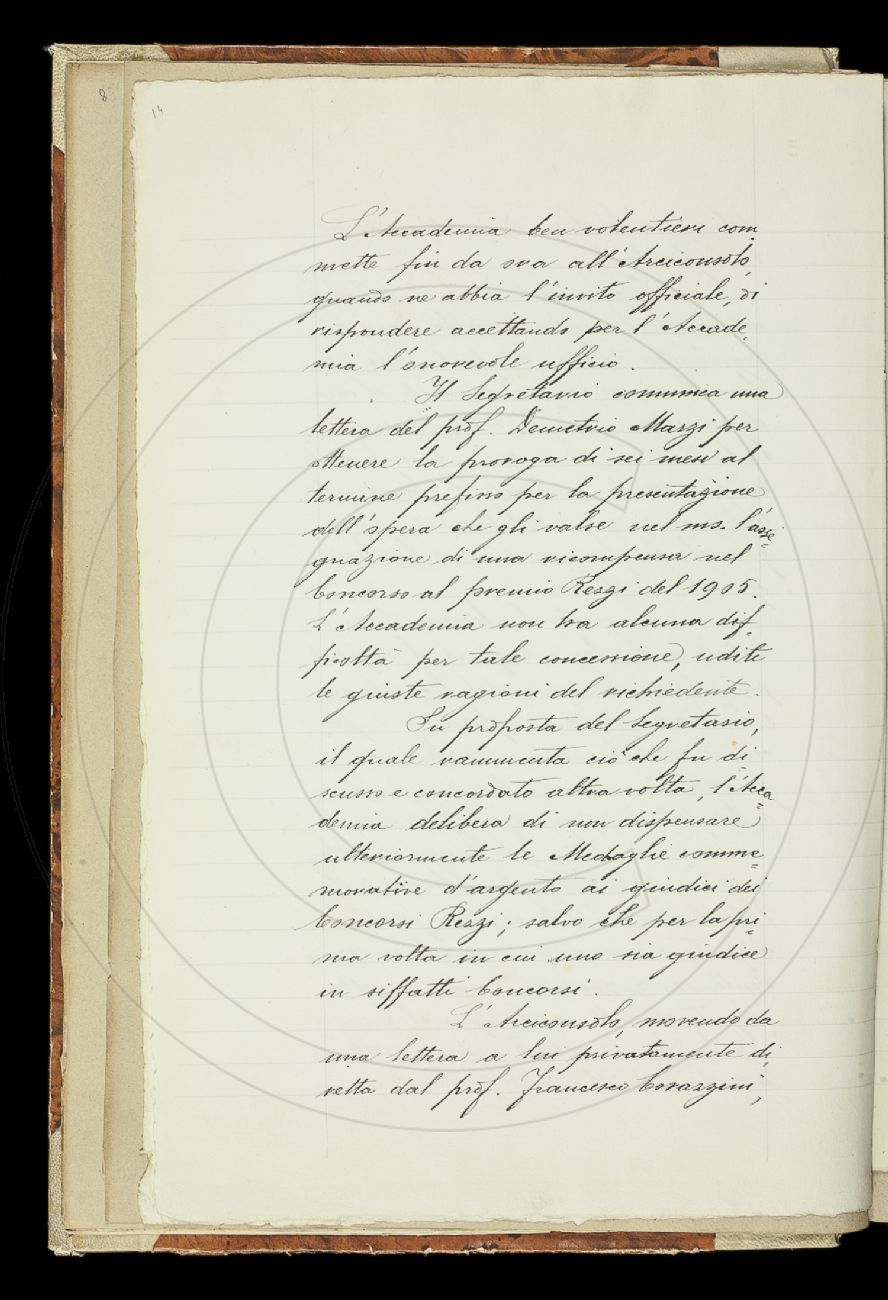 8
14
L'Accademia ben volentieri com
mette fin da ora all'Arciconsolo,
quando ne abbia l'invito officiale, di
rispondere accettando per l'Accade=
mia l'onorevole ufficio.
Il Segretario comunica una
lettera del prof. Demetrio Marzi per
ottenere la proroga di sei mesi al
termine prefisso per la presentazione
dell'opera che gli valse nel ms. l'asse=
gnazione di una ricompensa nel
Concorso al premio Rezzi del 1905.
L'Accademia non ha alcuna dif=
ficoltà per tale concessione, udite
le giuste ragioni del richiedente.
Su proposta del Segretario,
il quale rammenta ciò che fu di=
scusso e concordato altra volta, l'Acca=
demia delibera di non dispensare
ulteriormente le Medaglie comme=
morative d'argento ai giudici dei
Concorsi Rezzi; salvo che per la pri=
ma volta in cui uno sia giudice
in siffatti Concorsi.
L'Arciconsolo, movendo da
una lettera a lui privatamente di=
retta dal prof. Francesco Corazzini,